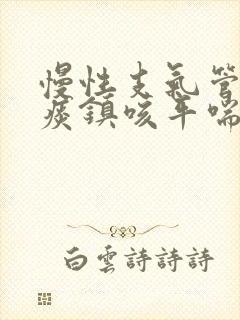 慢性支氣管
痰鎮咳平喘
白雲詩詩詩